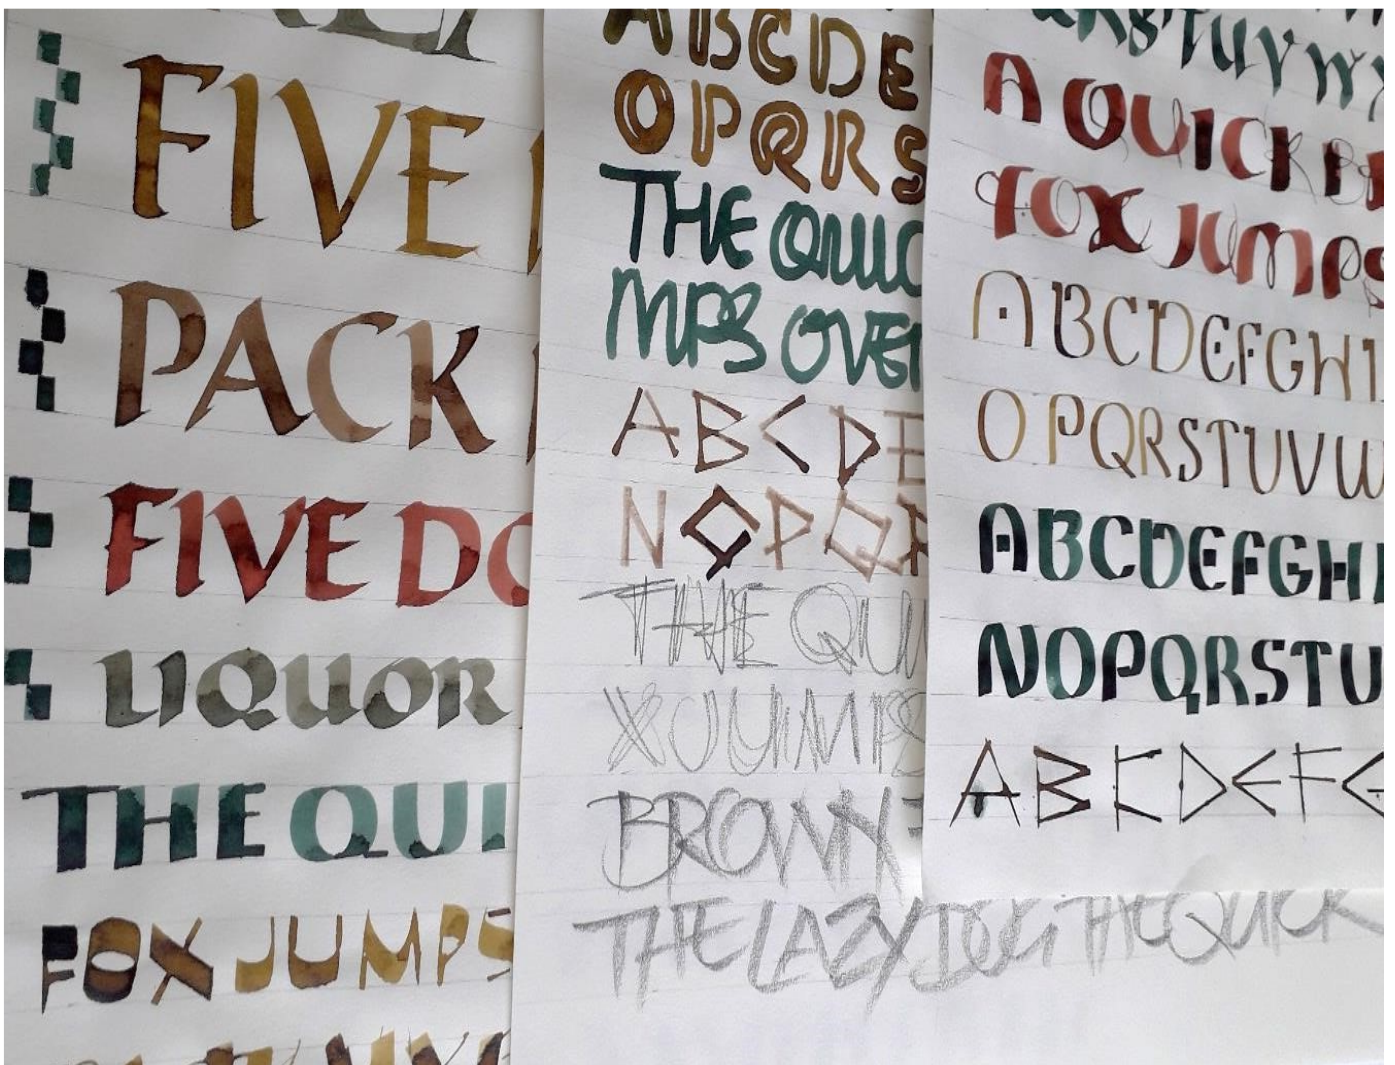 FIVE
PACK
FIVE DO
LIQUOR
THE QUI
FOX JUMPS
ABCDE
OPQRS
THE QUIC
MPS OVER
ABCDE
NOPQR
THE QUI
X JUMPS
BROWN
THE LAZY DOG THE QUICK
RSTUVWX
A QUICK BR
FOX JUMPS
ABCDEFGHI
OPQRSTUVW
ABCDEFGHI
NOPQRSTU
ABCDEFG